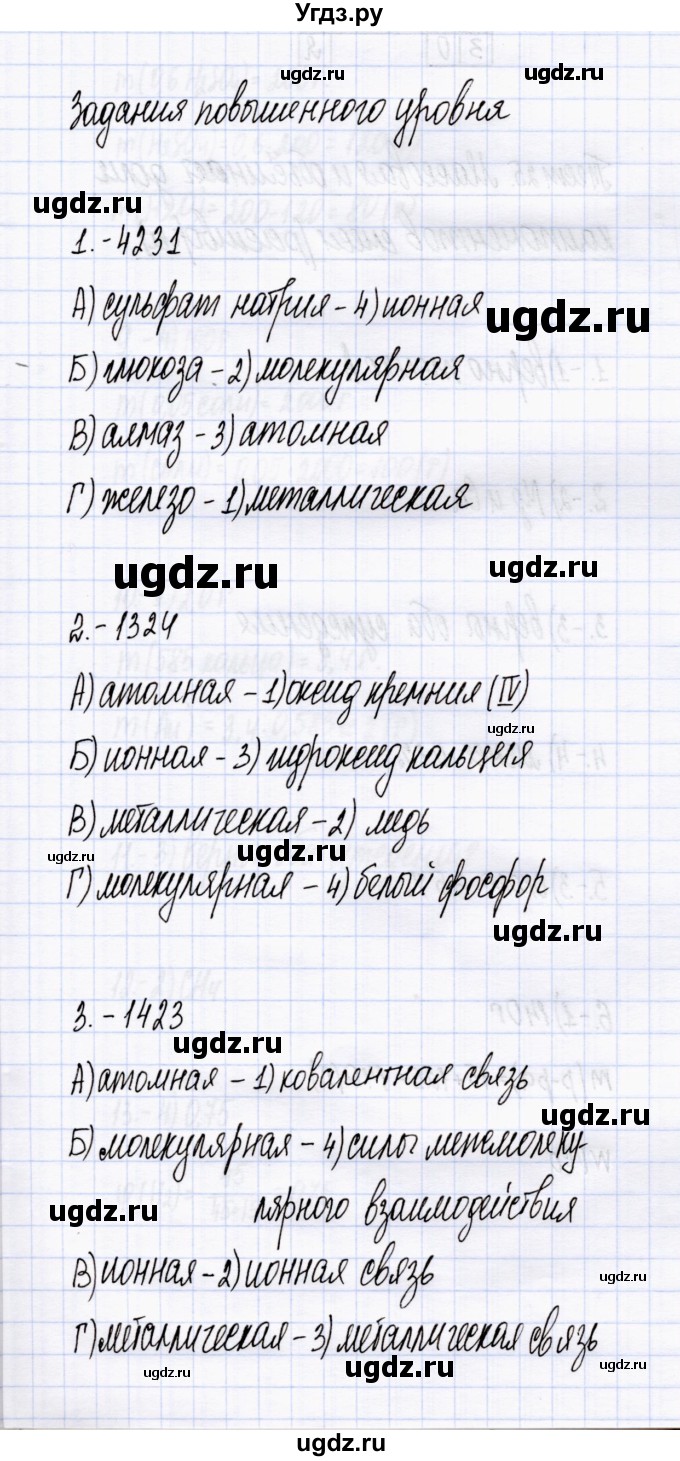 Угдз.ру
ugdz.ru ugdz.ru
Задания повышенного уровня
ugdz.ru
1.-4231
А) сульфат натрия - 4) ионная
ugdz.ru
Б) глюкоза - 2) молекулярная
В) алмаз - 3) атомная
Г) железо - 1) металлическая
ugdz.ru ugdz.ru
2.-1324
А) атомная - 1) оксид кремния (IV)
ugdz.ru
Б) ионная - 3) гидроксид кальция
В) металлическая - 2) медь
ugdz.ru ugdz.ru
Г) молекулярная - 4) белый фосфор
ugdz.ru
3.-1423
ugdz.ru
А) атомная - 1) ковалентная связь
ugdz.ru
Б) молекулярная - 4) силы межмолеку
ugdz.ru
лярного взаимодействия
В) ионная - 2) ионная связь
ugdz.ru
Г) металлическая - 3) металлическая связь
ugdz.ru ugdz.ru ugdz.ru
ugdz.ru